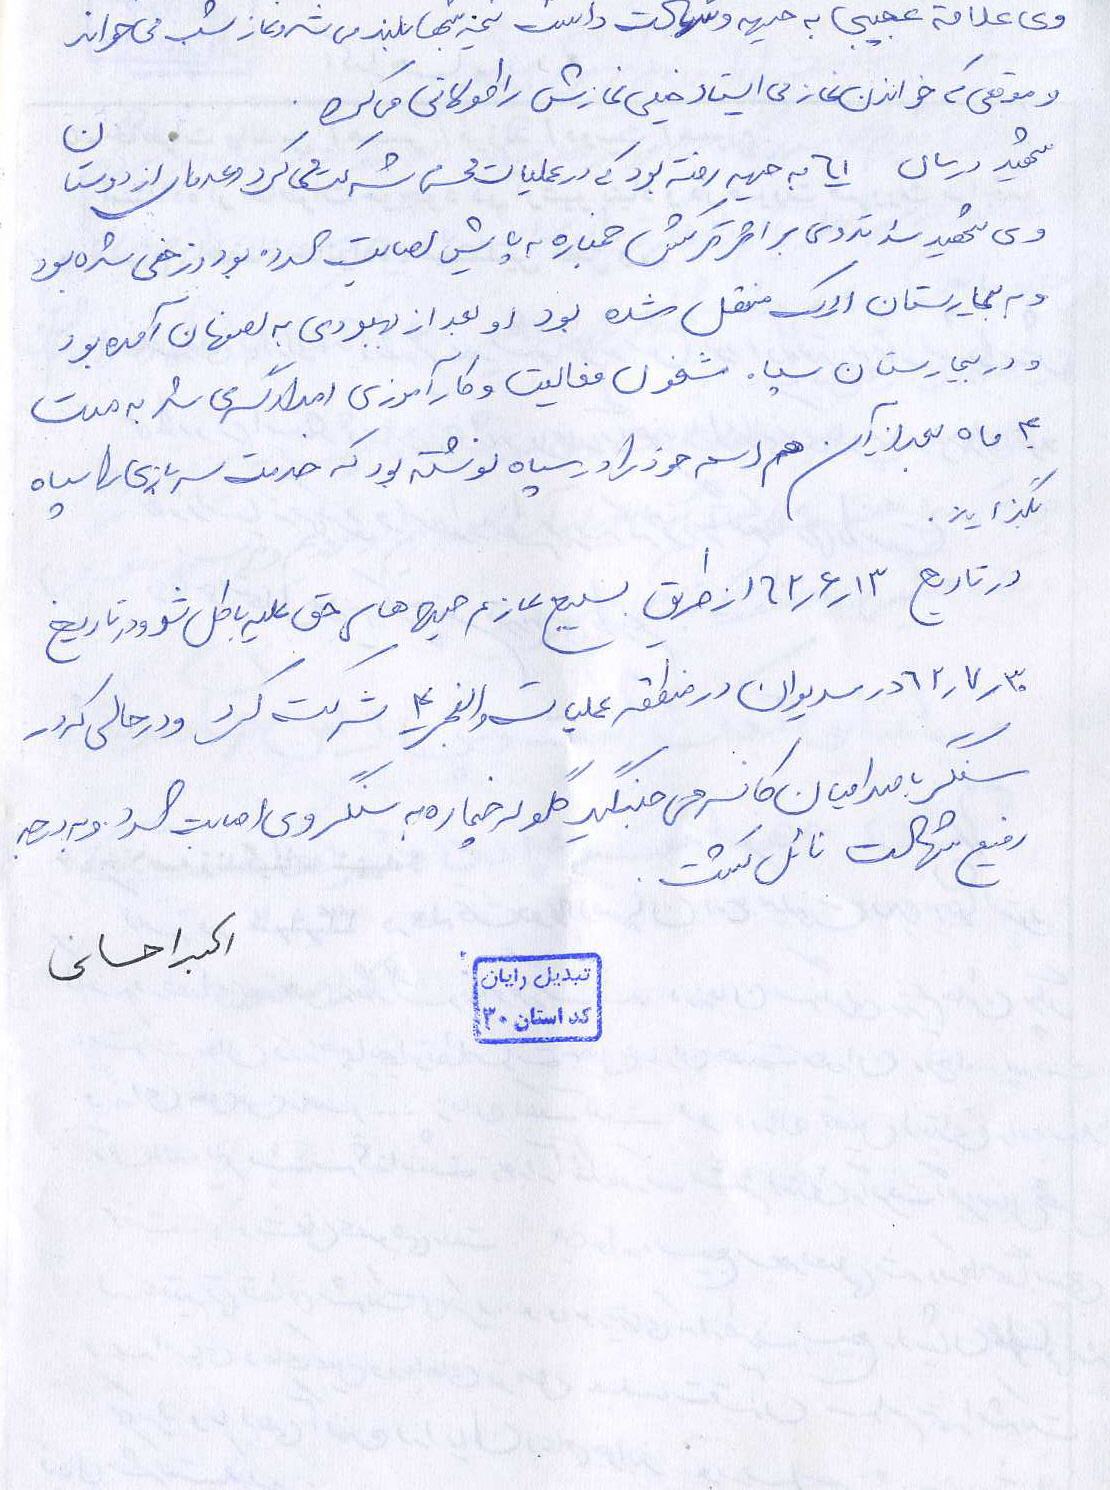 وی علاقه عجیبی به جبهه و شهادت داشت نیمه شبها بلند می شد و نماز شب می خواند
و موقعی که خواندن نماز می ایستاد خیلی نمازش را طولانی می کرد.
شهید در سال ٦١ به جبهه رفته بود که در عملیات محرم شرکت می کرد و عده ای از دوستان
وی شهید شدند وی بر اثر ترکش خمپاره به پایش اصابت کرده بود و زخمی شده بود
و به بیمارستان اراک منتقل شده بود او بعد از بهبودی به اصفهان آمده بود
و در بیمارستان سپاه مشغول فعالیت و کارآموزی امدادگری شد به مدت
۴ ماه بعد از آن هم اسم خود را در سپاه نوشته بود که خدمت سربازی را سپاه
بگذراند.
در تاریخ ۶۲٫۶٫۱۳ از طریق بسیج عازم جبهه های حق علیه باطل شد و در تاریخ
۶۲٫۷٫۳۰ در مریوان در منطقه عملیات والفجر ۴ شرکت کرد و در حالی که در
سنگر با صدامیان کافر می جنگید گلوله خمپاره به سنگر وی اصابت کرد و به درجه
رفیع شهادت نائل گشت.
اکبر احسانی
تبدیل رایان
کد استان ۳۰